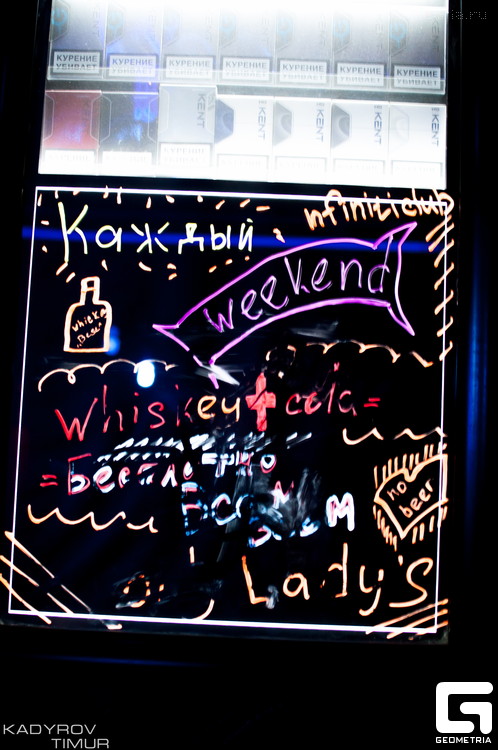 ia.ru
КУРЕНИЕ УБИВАЕТ КУРЕНИЕ УБИВАЕТ КУРЕНИЕ УБИВАЕТ КУРЕНИЕ УБИВАЕТ КУРЕНИЕ УБИВАЕТ КУРЕНИЕ УБИВАЕТ КУРЕНИЕ УБИВАЕТ
KENT KENT KENT KENT KENT
nfiniti club
Каждый
weekend
whiskey + cola =
= Бесплатно
Всем
no beer
Lady's
KADYROV
TIMUR
GEOMETRIA